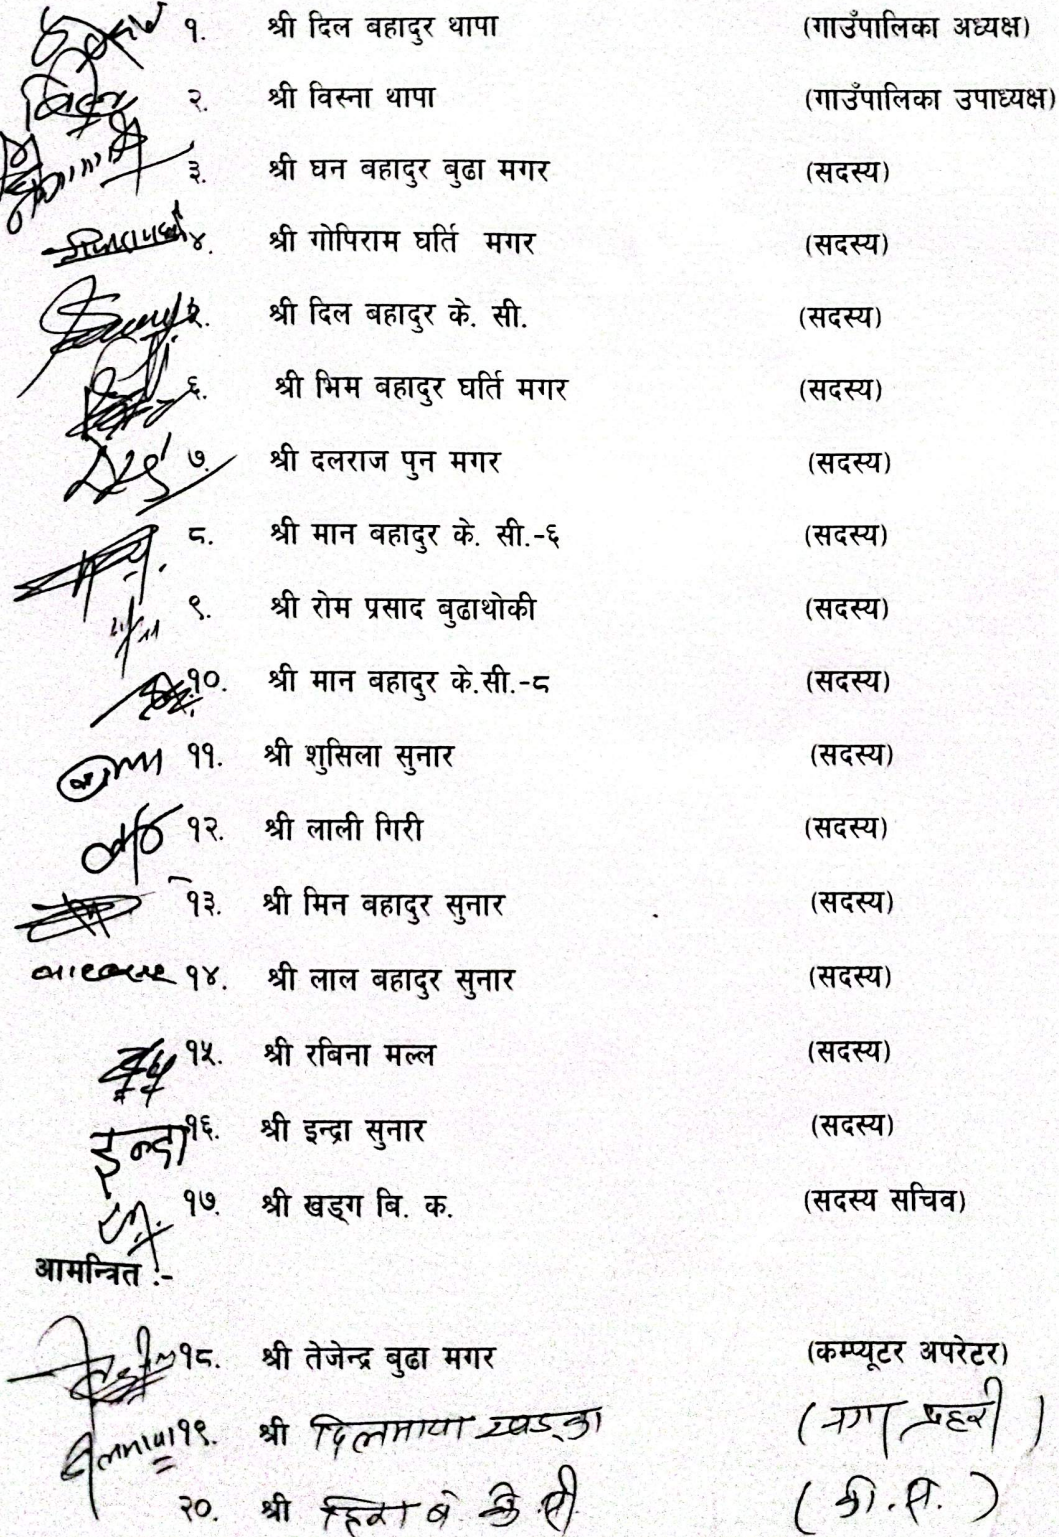 १. श्री दिल बहादुर थापा (गाउँपालिका अध्यक्ष)
२. श्री विस्ना थापा (गाउँपालिका उपाध्यक्ष)
३. श्री घन बहादुर बुढा मगर (सदस्य)
४. श्री गोपिराम घर्ति मगर (सदस्य)
५. श्री दिल बहादुर के. सी. (सदस्य)
६. श्री भिम बहादुर घर्ति मगर (सदस्य)
७. श्री दलराज पुन मगर (सदस्य)
८. श्री मान बहादुर के. सी.-६ (सदस्य)
९. श्री रोम प्रसाद बुढाथोकी (सदस्य)
१०. श्री मान बहादुर के.सी.-८ (सदस्य)
११. श्री शुसिला सुनार (सदस्य)
१२. श्री लाली गिरी (सदस्य)
१३. श्री मिन बहादुर सुनार (सदस्य)
१४. श्री लाल बहादुर सुनार (सदस्य)
१५. श्री रबिना मल्ल (सदस्य)
इन्द्रा १६. श्री इन्द्रा सुनार (सदस्य)
१७. श्री खड्ग बि. क. (सदस्य सचिव)
आमन्त्रित :-
१८. श्री तेजेन्द्र बुढा मगर (कम्प्यूटर अपरेटर)
१९. श्री दिलमाया खड्का (नगर प्रहरी)
२०. श्री